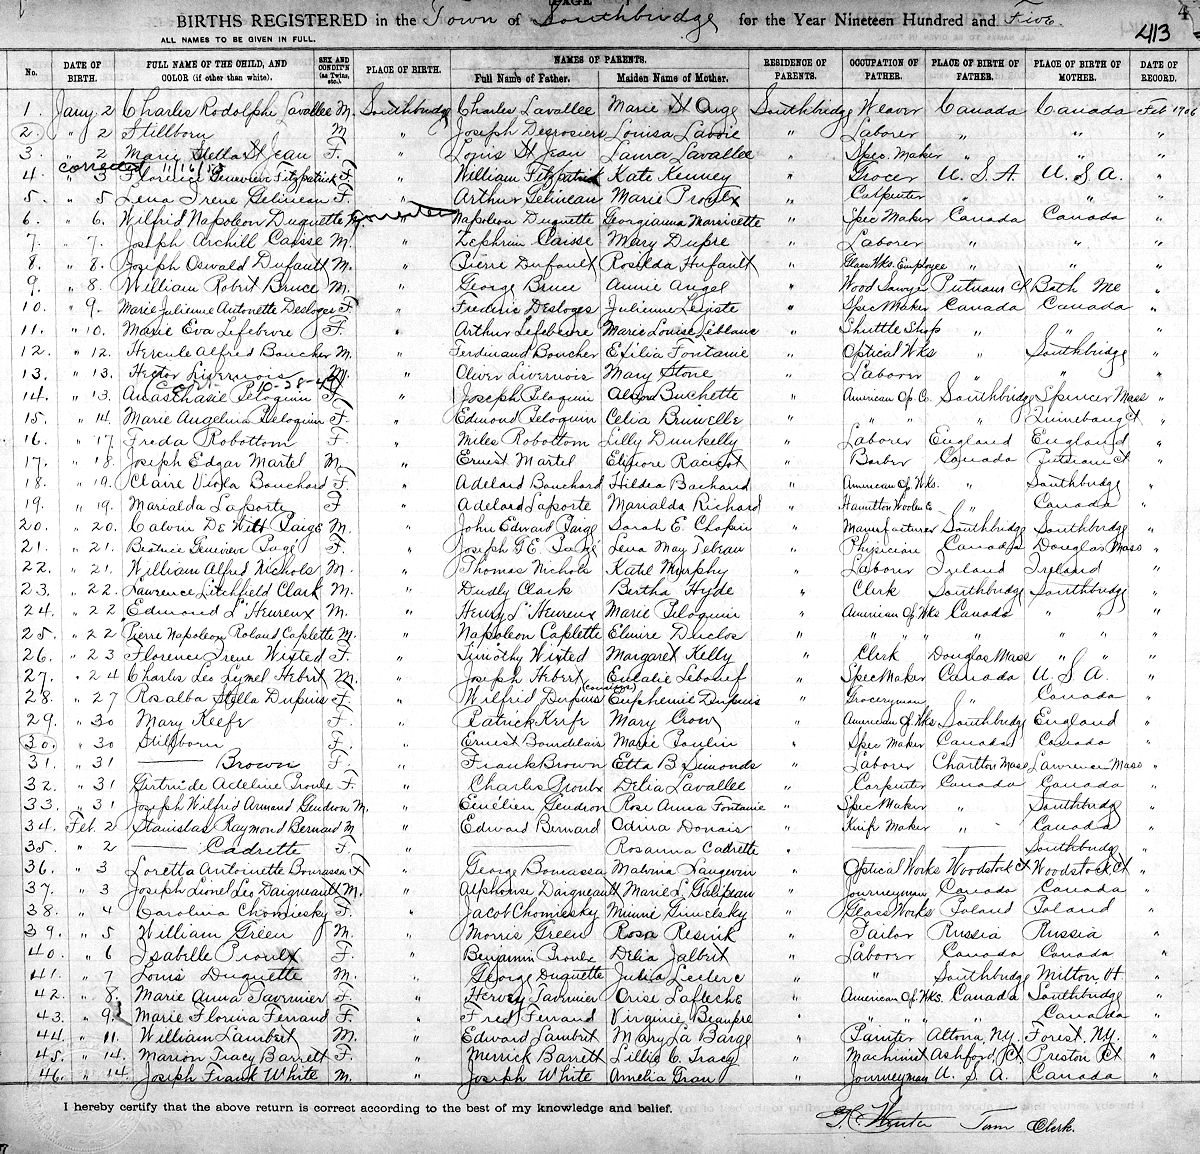 PAGE
4
BIRTHS REGISTERED in the Town of Southbridge for the Year Nineteen Hundred and Five
413
ALL NAMES TO BE GIVEN IN FULL.
No. DATE OF BIRTH. FULL NAME OF THE CHILD, AND COLOR (if other than white). SEX AND CONDIT'N (as Twins, etc.) PLACE OF BIRTH. NAMES OF PARENTS. Full Name of Father. Maiden Name of Mother. RESIDENCE OF PARENTS. OCCUPATION OF FATHER. PLACE OF BIRTH OF FATHER. PLACE OF BIRTH OF MOTHER. DATE OF RECORD.
1. Jany 2 Charles Rodolphe Lavallee M. Southbridge Charles Lavallee Marie St Onge Southbridge Weaver Canada Canada Feb 1906
2. " 2 Stillborn M. " Joseph Desrosiers Louisa Lavoie " Laborer " " "
3. " 2 Marie Stella St Jean F. " Louis St Jean Laura Lavallee " Spec. Maker " " "
corrected
4. " 3 Florence Genevieve Fitzpatrick F. " William Fitzpatrick Kate Kenney " Grocer U. S. A. U. S. A. "
5. " 5 Lena Irene Gelineau F. " Arthur Gelineau Marie Proulx " Carpenter " " "
6. " 6. Wilfrid Napoleon Duquette M. Napoleon Duquette Georgianna " Spec Maker Canada Canada "
7. " 7. Joseph Archill Caisse M. " Zephrim Caisse Mary Dupre " Laborer " " "
8. " 8. Joseph Oswald Dufault M. " Pierre Dufault Rosilda Hufault " Glass Wks. Employee " " "
9. " 8. William Robert Bruce M. " George Bruce Annie Angel " Wood Sawyer Putnam Ct Bath Me "
10. " 9. Marie Julienne Antonette Desloges F. " Frederic Desloges Julienne " Spec Maker Canada Canada "
11. " 10. Marie Eva Lefebvre F. " Arthur Lefebvre Marie Louise Leblanc " Shuttle Shop " " "
12. " 12. Hercule Alfred Boucher M. " Ferdinand Boucher Exilia Fontaine " Optical Wks " Southbridge "
13. " 13. Hector Livernois M. " Oliver Livernois Mary Stone " Laborer " " "
10-28-49
14. " 13. Anasthasie Peloquin F. " Joseph Peloquin Buchette " American O. Co. Southbridge Spencer Mass "
15. " 14. Marie Angelina Peloquin F. " Edmond Peloquin Celia Brunelle " " " " Quinebaug Ct "
16. " 17 Freda Robottom F. " Miles Robottom Lilly Dunkelly " Laborer England England "
17. " 18. Joseph Edgar Martel M. " Ernest Martel Racicot " Barber Canada Putnam Ct "
18. " 19. Claire Viola Bouchard F. " Adelard Bouchard Hildea Bachand " American O. Wks. " Southbridge "
19. " 19. Marialda Laporte F " Adelard Laporte Marialda Richard " Hamilton Woolen Co " Canada "
20. " 20. Calvin De Witt Paige M. " John Edward Paige Sarah E. Chapin " Manufacturer Southbridge Southbridge "
21. " 21. Beatrice Genevieve Pagé F. " Joseph G E. Pagé Lena May Tebeau " Physician Canada Douglas Mass "
22. " 21. William Alfred Nichols M. " Thomas Nichols Katel Murphy " Laborer Ireland Ireland "
23. " 22. Lawrence Litchfield Clark M. " Dudly Clark Bertha Hyde " Clerk Southbridge Southbridge "
24. " 22 Edmond L'Heureux M. " Henry L'Heureux Marie Peloquin " American O. Wks Canada " "
25. " 22 Pierre Napoleon Roland Caplette M. " Napoleon Caplette Elmire Duclos " " " " " " "
26. " 23 Florence Irene Wixted F. " Timothy Wixted Margaret Kelly " Clerk Douglas Mass " " "
27. " 24 Charles Leo Lymel Hebert M. " Joseph Hebert Eulalie Leboeuf " Spec Maker Canada U. S. A. "
28. " 27 Rosalba Stella Dupuis F. " Wilfrid Dupuis (cousins) Euphemie Dupuis " Groceryman " Canada "
29. " 30 Mary Keefe F. " Patrick Keefe Mary Crow " American O. Wks Southbridge England "
30. " 30 Stillborn F. " Ernest Bourdelais Marie Poulin " Spec Maker Canada Canada "
31. " 31 —— Brown F. " Frank Brown Etta B Simonds " Laborer Charlton Mass Lawrence Mass "
32. " 31 Gertrude Adeline Proulx F. " Charles Proulx Delia Lavallee " Carpenter Canada Canada "
33. " 31 Joseph Wilfrid Armand Gendron M. " Emélien Gendron Rose Anna Fontaine " Spec Maker " Southbridge "
34. Feb. 2 Stanislas Raymond Bernard M " Edward Bernard Odina Donais " Knife Maker " Canada "
35. " 2 —— Cadrette F. " —— Rosanna Cadrette " —— —— Southbridge "
36. " 3 Loretta Antoinette Bourassa F " George Bourassa Malvina Laugevin " Optical Works Woodstock Ct Woodstock Ct "
37. " 3 Joseph Lionel Leo Daigneault M. " Alphonse Daigneault Marie L. Galipeau " Journeyman Canada Canada "
38. " 4 Carolina Chomiesky F. " Jacob Chomiesky Minnie " Glass Works Poland Poland "
39. " 5 William Green M. " Morris Green Rosa Resink " Tailor Russia Russia "
40. " 6 Isabelle Proulx F. " Benjamin Proulx Delia Jalbert " Laborer Canada Canada "
41. " 7 Louis Duquette M. " George Duquette Julia Leclerc " " Southbridge Milton Vt "
42. " 8. Marie Anna Tavernier F. " Hervey Tavernier Orise Lafleche " American O. Wks. Canada Southbridge "
43. " 9. Marie Florina Ferrand F. " Fred Ferrand Virginie Beaupre " " " " Canada "
44. " 11. William Lambert M. " Edward Lambert Mary La Barge " Painter Altona, N.Y. Forest, N.Y. "
45. " 14. Marion Tracy Barrett F. " Merrick Barrett Lillie C. Tracy " Machinist Ashford, Ct Preston Ct "
46. " 14. Joseph Frank White M. " Joseph White Amelia Grau " Journeyman U. S. A. Canada "
I hereby certify that the above return is correct according to the best of my knowledge and belief.
Town Clerk.